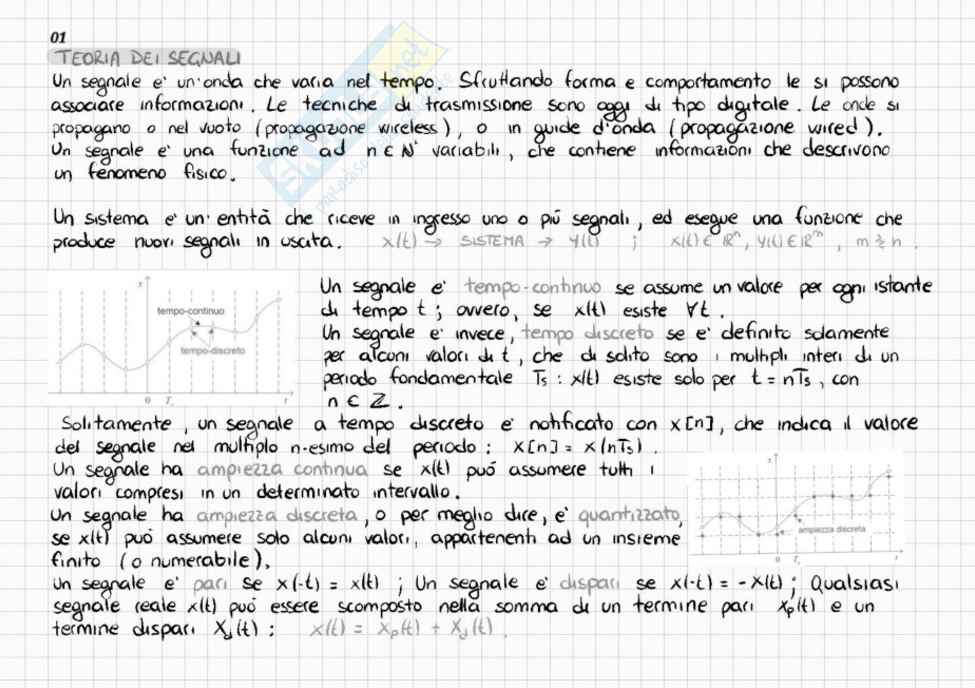 01
TEORIA DEI SEGNALI
Un segnale e' un'onda che varia nel tempo. Sfruttando forma e comportamento le si possono
associare informazioni. Le tecniche di trasmissione sono oggi di tipo digitale. Le onde si
propagano o nel vuoto (propagazione wireless), o in guide d'onda (propagazione wired).
Un segnale e' una funzione ad n ∈ N variabili, che contiene informazioni che descrivono
un fenomeno fisico.
Un sistema e' un'entità che riceve in ingresso uno o più segnali, ed esegue una funzione che
produce nuovi segnali in uscita. x(t) → SISTEMA → y(t) ; x(t) ∈ ℝⁿ, y(t) ∈ ℝᵐ, m ≷ n.
x
tempo-continuo
tempo-discreto
0 Tₛ t
Un segnale e' tempo-continuo se assume un valore per ogni istante
di tempo t ; ovvero, se x(t) esiste ∀t.
Un segnale e' invece, tempo discreto se e' definito solamente
per alcuni valori di t, che di solito sono i multipli interi di un
periodo fondamentale Tₛ : x(t) esiste solo per t = nTₛ, con
n ∈ ℤ.
Solitamente, un segnale a tempo discreto e' notificato con x[n], che indica il valore
del segnale nel multiplo n-esimo del periodo : x[n] = x(nTₛ).
Un segnale ha ampiezza continua se x(t) può assumere tutti i
valori compresi in un determinato intervallo.
Un segnale ha ampiezza discreta, o per meglio dire, e' quantizzato,
se x(t) può assumere solo alcuni valori, appartenenti ad un insieme
finito (o numerabile).
x
ampiezza discreta
0 Tₛ t
Un segnale e' pari se x(-t) = x(t) ; Un segnale e' dispari se x(-t) = -x(t) ; Qualsiasi
segnale reale x(t) può essere scomposto nella somma di un termine pari xₚ(t) e un
termine dispari x_d(t) : x(t) = xₚ(t) + x_d(t).